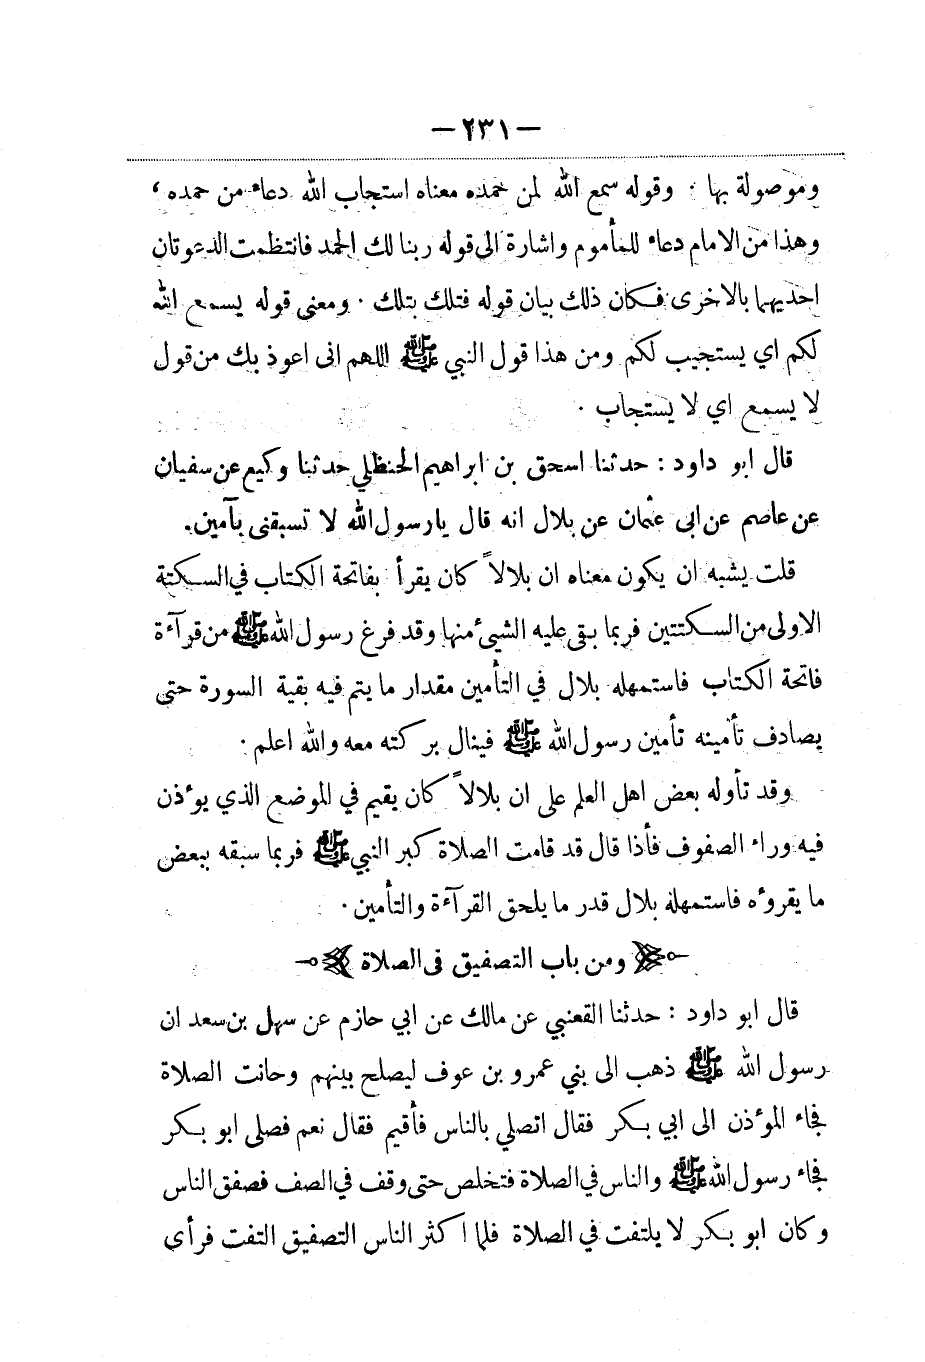 — ٢٣١ —
وموصولة بها . وقوله سمع الله لمن حمده معناه استجاب الله دعاء من حمده ،
وهذا من الامام دعاء للمأموم واشارة الى قوله ربنا لك الحمد فانتظمت الدعوتان
احديهما بالاخرى فكان ذلك بيان قوله فتلك بتلك . ومعنى قوله يسمع الله
لكم اي يستجيب لكم ومن هذا قول النبي ﷺ اللهم انى اعوذ بك من قول
لا يسمع اي لا يستجاب .
قال ابو داود : حدثنا اسحق بن ابراهيم الحنظلي حدثنا وكيع عن سفيان
عن عاصم عن ابى عثمان عن بلال انه قال يا رسول الله لا تسبقنى بآمين .
قلت يشبه ان يكون معناه ان بلالاً كان يقرأ بفاتحة الكتاب في السكتة
الاولى من السكتتين فربما بقى عليه الشيء منها وقد فرغ رسول الله ﷺ من قرآءة
فاتحة الكتاب فاستمهله بلال في التأمين مقدار ما يتم فيه بقية السورة حتى
يصادف تأمينه تأمين رسول الله ﷺ فينال بركته معه والله اعلم .
وقد تأوله بعض اهل العلم على ان بلالاً كان يقيم في الموضع الذي يوءذن
فيه وراء الصفوف فأذا قال قد قامت الصلاة كبر النبي ﷺ فربما سبقه ببعض
ما يقروءه فاستمهله بلال قدر ما يلحق القرآءة والتأمين .
ومن باب التصفيق فى الصلاة
قال ابو داود : حدثنا القعنبي عن مالك عن ابي حازم عن سهل بن سعد ان
رسول الله ﷺ ذهب الى بني عمرو بن عوف ليصلح بينهم وحانت الصلاة
فجاء الموءذن الى ابي بكر فقال اتصلي بالناس فأقيم فقال نعم فصلى ابو بكر
فجاء رسول الله ﷺ والناس في الصلاة فتخلص حتى وقف في الصف فصفق الناس
وكان ابو بكر لا يلتفت في الصلاة فلما اكثر الناس التصفيق التفت فرأى